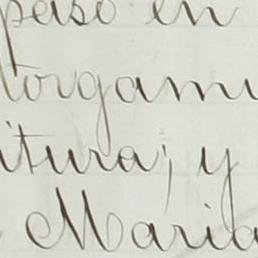 peso en
torgami
itura; y
Maria